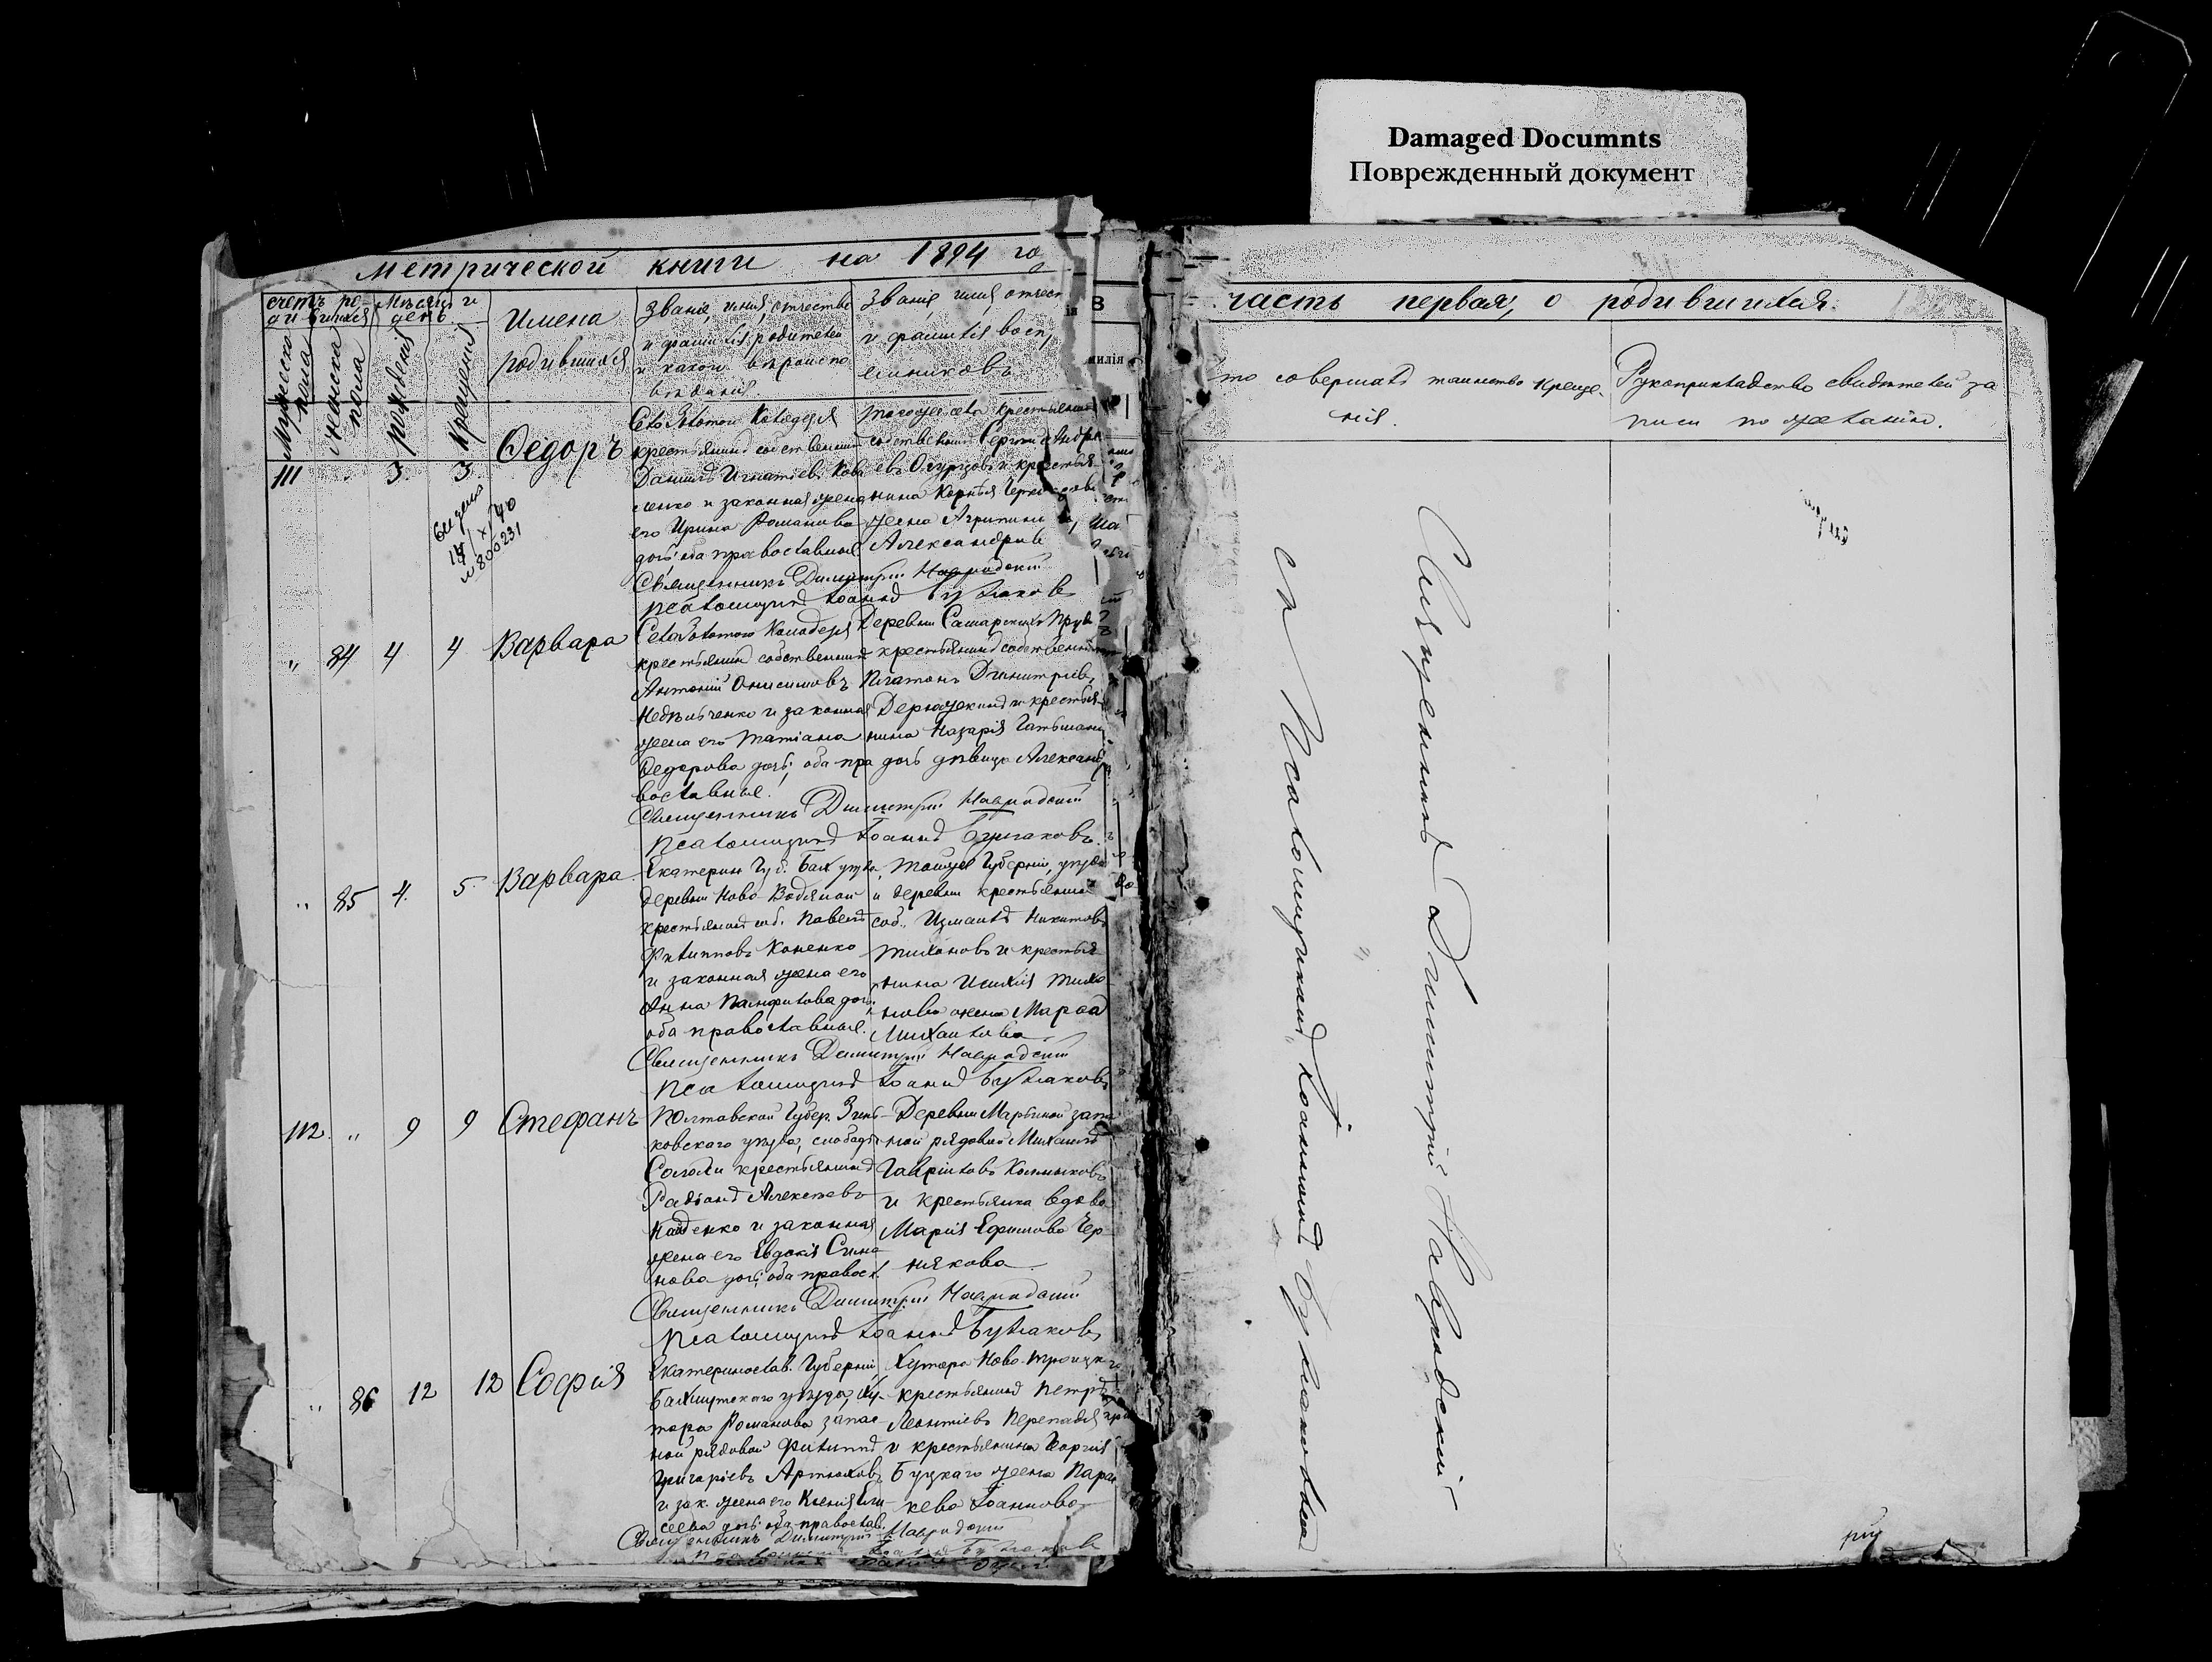 Damaged Documnts
Поврежденный документ
Метрической книги на 1894 го
счетъ ро-
дившихся
Мѣсяцъ и
день
Мужеско
пола
женска
пола
рожденія
крещенія
Имена
родившихся
Званіе, имя, отчество
и фамилія родителей
и какого вѣроиспо
вѣданія.
Званіе, имя, отчест
и фамилія восп
емниковъ
8
милія
часть первая, о родившихся.
то совершалъ таинство креще-
нія.
Рукоприкладство свидѣтелей за
писи по желанію.
111 3 3 Ѳедоръ
14/X/40
№ 800231
Села Золотой Колодезя
крестьянинъ собственникъ
Даніилъ Игнатіевъ Кова
ленко и законная жена
его Ирина Романова
дочь; оба православные
тогоже села крестьянинъ
собственникъ Сергѣй Андре
евъ Огурцовъ и крестья
нина Корнѣя
жена Агрипина
Александрова
Священникъ Димитрій Навродскій
Псаломщикъ Іоаннъ Булаковъ
" 84 4 4 Варвара
Села Золотого Колодезя
крестьянинъ собственникъ
Антоній Онисимовъ
Недѣльченко и законная
жена его Татіана
Ѳедорова дочь; оба пра
вославные.
Деревни Самарскихъ Пруд
крестьянинъ собственникъ
Платонъ Димитріев
и крестья
нина Назарія Гатьмана
дочь дѣвица Александр
Священникъ Димитрій Навродскій
Псаломщикъ Іоаннъ Булаковъ.
" 85 4. 5. Варвара
Екатерин. Губ. Бах. уѣзда
деревни Ново-Водяной
крестьянинъ соб. Павелъ
Филипповъ Коненко
и законная жена его
Анна Панфилова дочь;
оба православные.
Тойже Губерніи, уѣзда
и деревни крестьянинъ
соб. Измаилъ Никитовъ
Тихоновъ и крестья
нина Тихо
нова жена Марѳа
Михаилова
Священникъ Димитрій Навродскій
Псаломщикъ Іоаннъ Булаковъ
112. " 9 9 Стефанъ
Полтавской Губер. Зинь-
ковскаго уѣзда, слободы
крестьянинъ
Алексѣевъ
и законная
жена его Евдокія
нова дочь; оба правосл.
Деревни Марьиной запас
ной рядовой Михаилъ
Гавріиловъ Калмыковъ
и крестьянка вдова
Марія Ефимова Чер-
някова
Священникъ Димитрій Навродскій
Псаломщикъ Іоаннъ Булаковъ
" 86 12 12 Софія
Екатеринослав. Губерніи,
Бахмутского уѣзда, ху-
тора Романова запас-
ной рядовой Филиппъ
Григоріевъ Артюховъ
и зак. жена его Ксенія Ели-
сеева дочь; оба православ.
Хутора Ново-Троицкаго
крестьянинъ Петръ
Леонтіевъ Перепадя
и крестьянина Георгія
Буцкаго жена Парас
кева Іоаннова
Священникъ Димитрій Навродскій
Псаломщикъ Іоаннъ Булаковъ
Священникъ Димитрій Навродскій
съ Псаломщикомъ Іоанномъ Булаковымъ